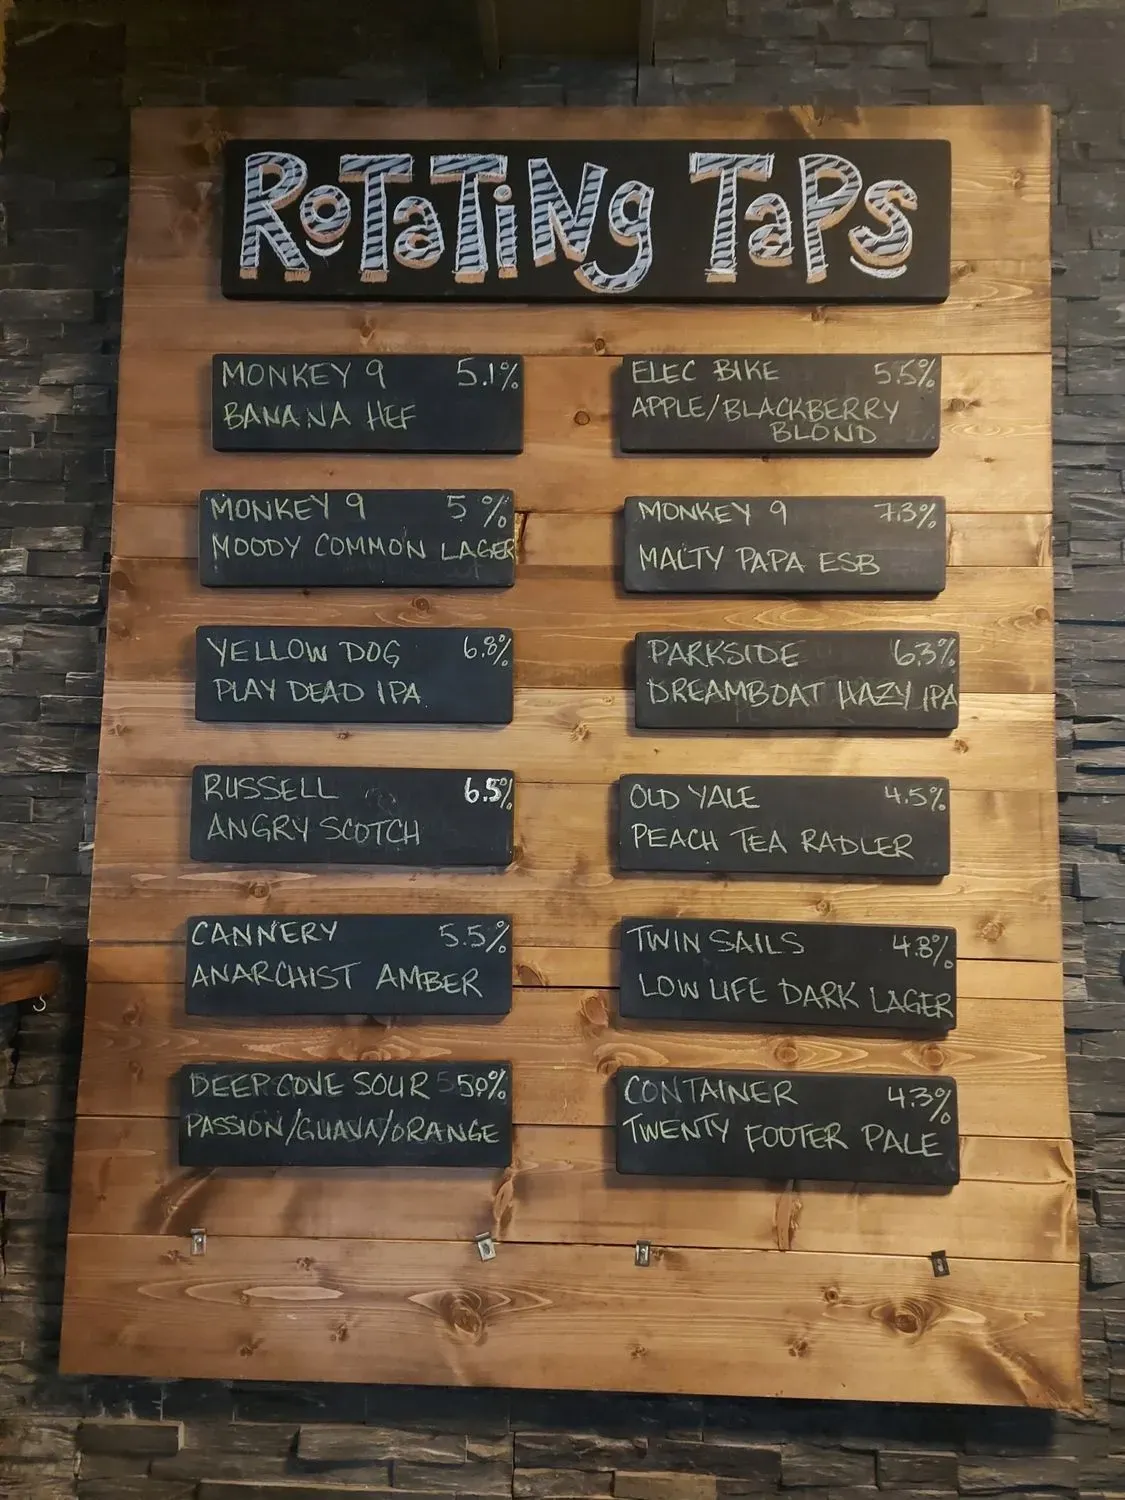 RoTaTiNg TaPs
MONKEY 9 5.1%
BANANA HEF
MONKEY 9 5%
MOODY COMMON LAGER
YELLOW DOG 6.8%
PLAY DEAD IPA
RUSSELL 6.5%
ANGRY SCOTCH
CANNERY 5.5%
ANARCHIST AMBER
DEEP COVE SOUR 5.0%
PASSION/GUAVA/ORANGE
ELEC BIKE 5.5%
APPLE/BLACKBERRY
BLOND
MONKEY 9 7.3%
MALTY PAPA ESB
PARKSIDE 6.3%
DREAMBOAT HAZY IPA
OLD YALE 4.5%
PEACH TEA RADLER
TWIN SAILS 4.8%
LOW LIFE DARK LAGER
CONTAINER 4.3%
TWENTY FOOTER PALE